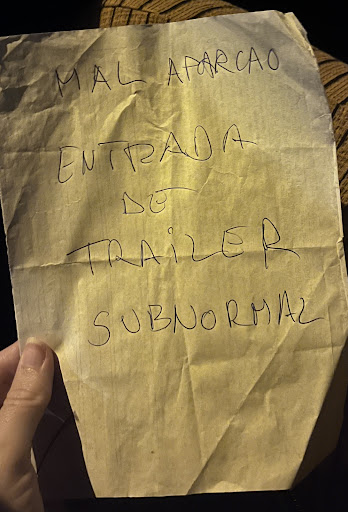 MAL APARCAO
ENTRADA
DE
TRAiLER
SUBNORMAL